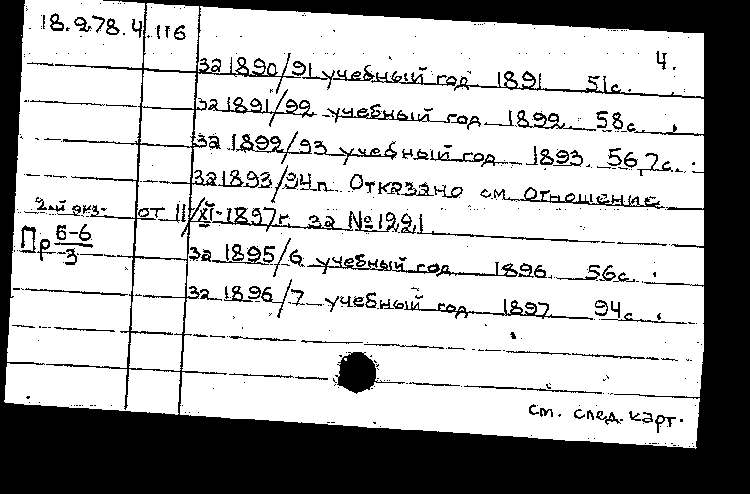 18.278.4.116
4.
за 1890/91 учебный год 1891 51с.
за 1891/92 учебный год 1892 58с.
за 1892/93 учебный год 1893 56,7с.
за 1893/94 г. Отказано см. Отношение
2-й экз. от 11/XI-1897г. за №1221
Пр 5-6/3
за 1895/6 учебный год 1896 56с.
за 1896/7 учебный год 1897 94с.
см. след. карт.